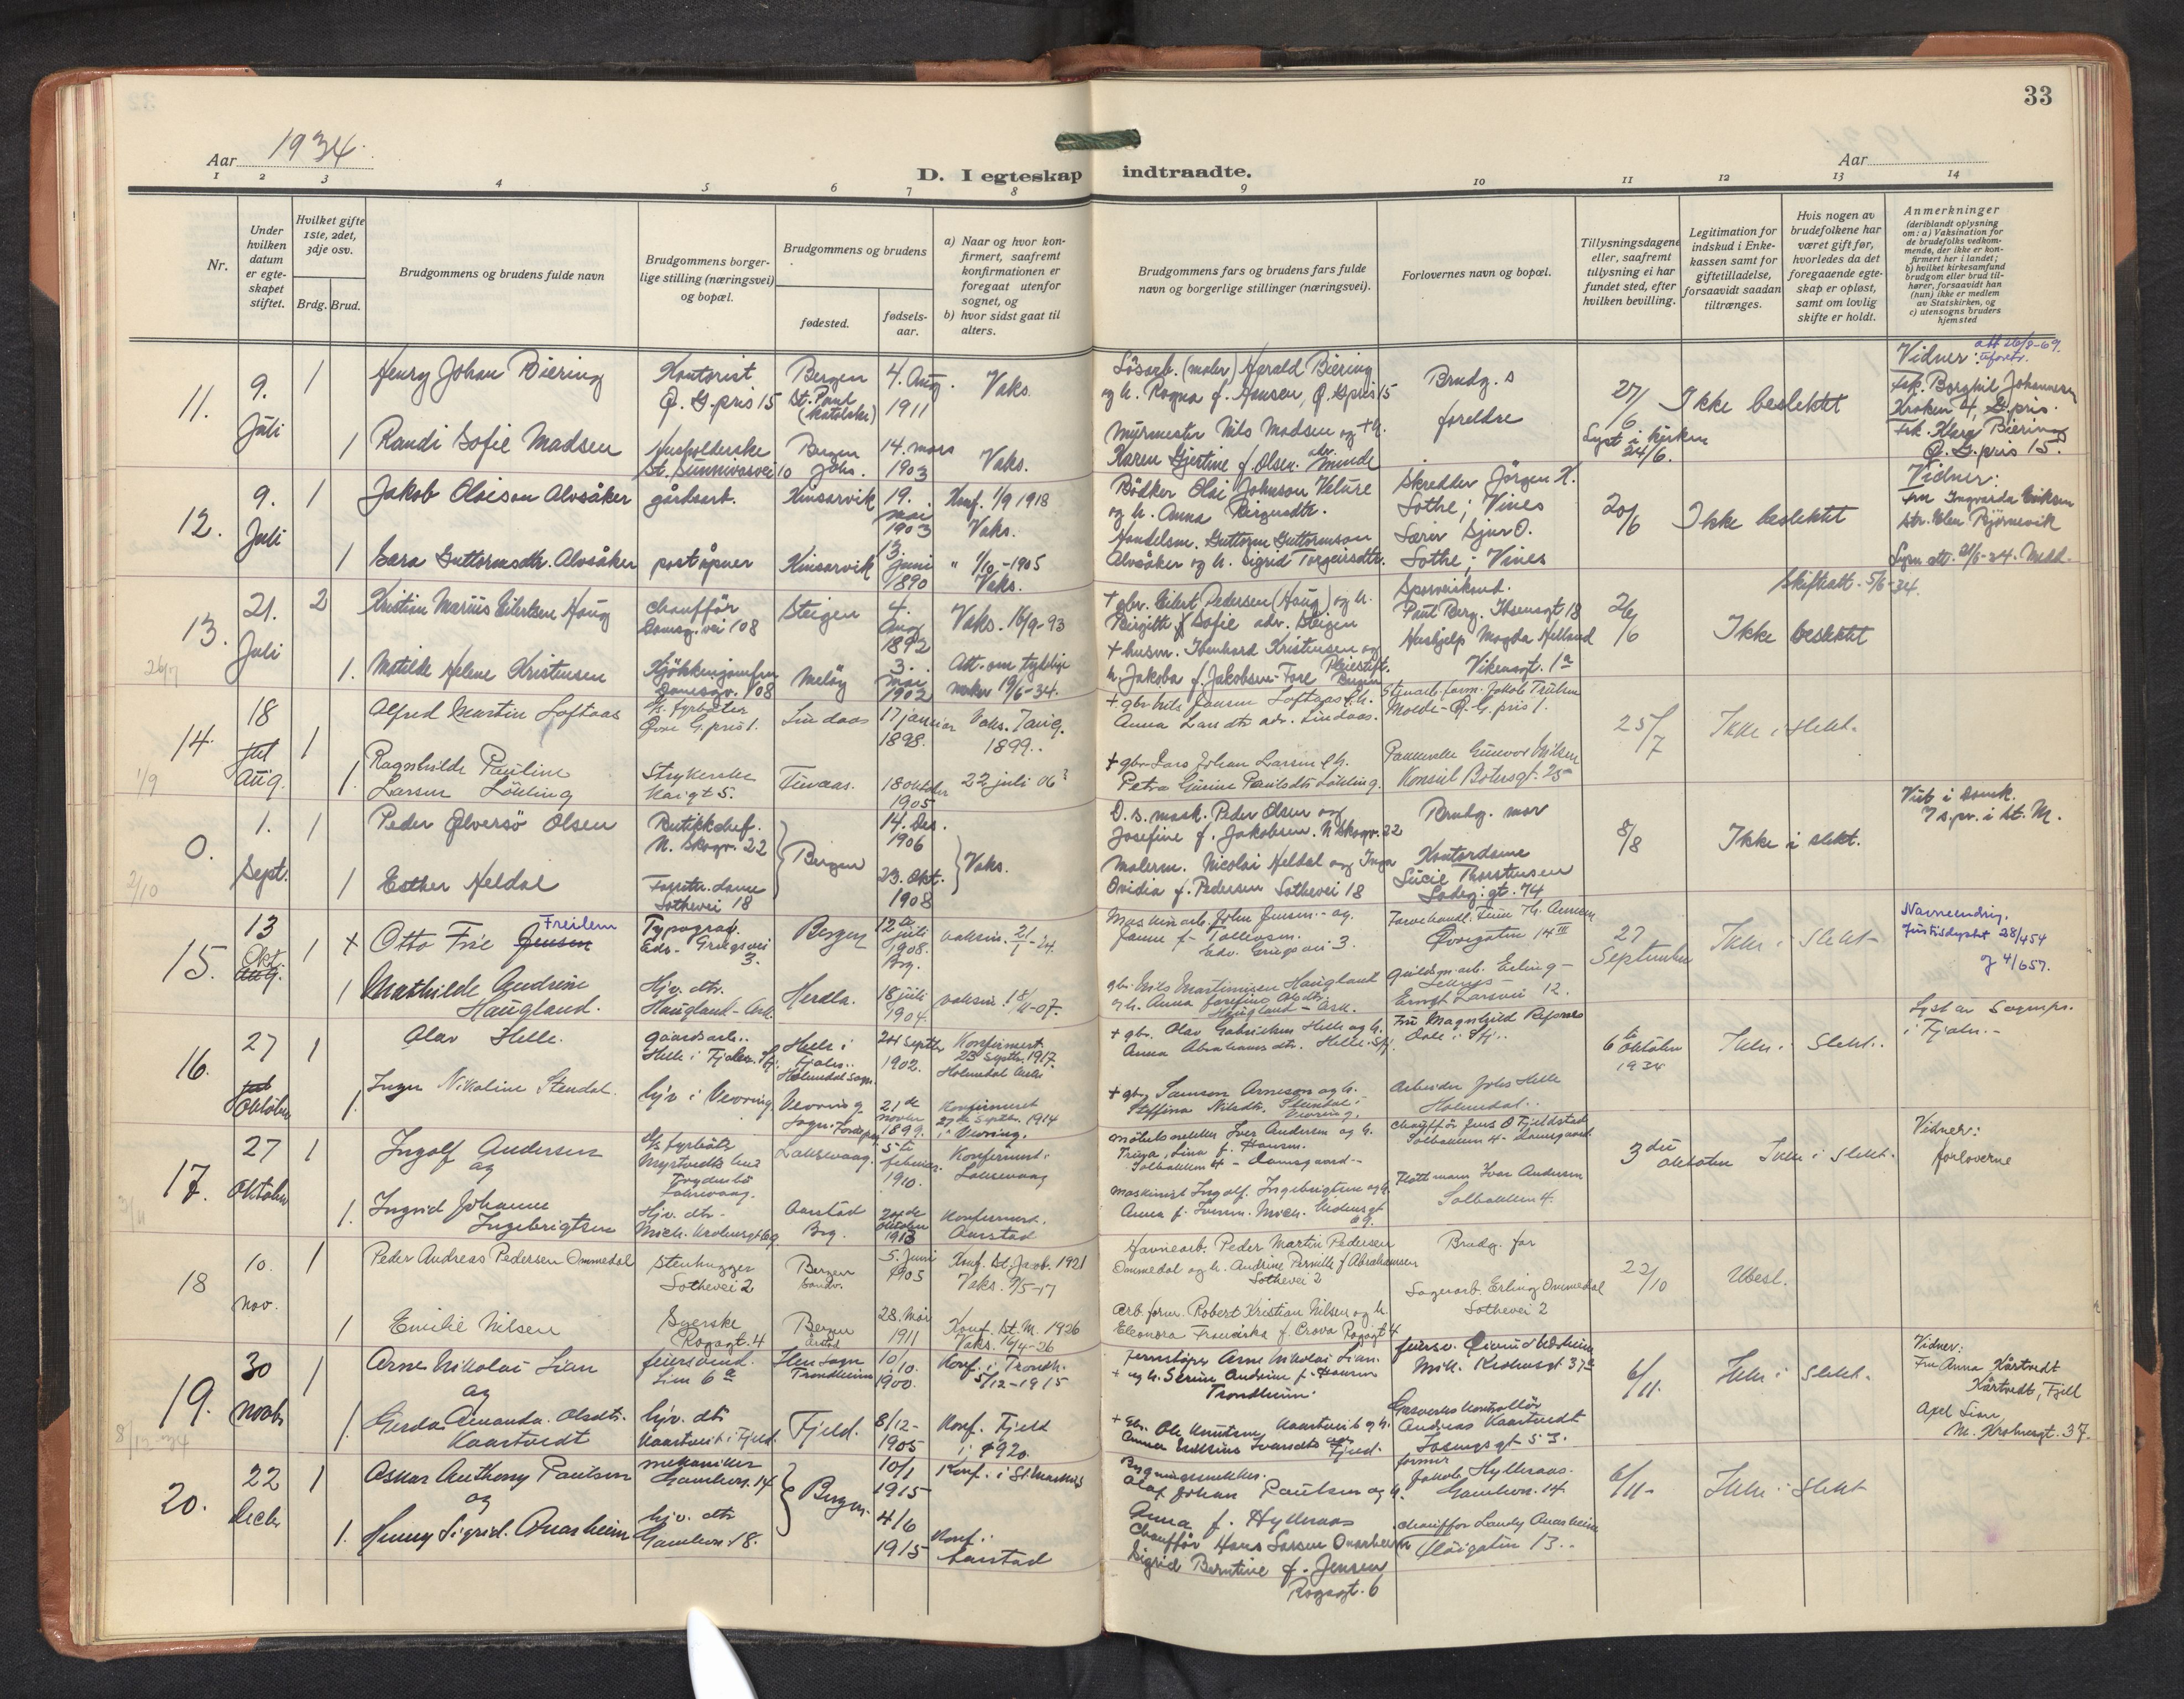 33
Aar 1934.
Aar
D. I egteskap indtraadte.
1 2 3 4 5 6 7 8 9 10 11 12 13 14
Nr.
Under hvilken datum er egte-skapet stiftet.
Hvilket gifte 1ste, 2det, 3dje osv.
Brdg. Brud.
Brudgommens og brudens fulde navn
Brudgommens borger-lige stilling (næringsvei) og bopæl.
Brudgommens og brudens
fødested.
fødsels-aar.
a) Naar og hvor kon-firmert, saafremt konfirmationen er foregaat utenfor sognet, og
b) hvor sidst gaat til alters.
Brudgommens fars og brudens fars fulde navn og borgerlige stillinger (næringsvei).
Forlovernes navn og bopæl.
Tillysningsdagene eller, saafremt tullysning ei har fundet sted, efter hvilken bevilling.
Legitimation for indskud i Enke-kassen samt for giftetilladelse, forsaavidt saadan tiltrænges.
Hvis nogen av brudefolkene har været gift før, hvorledes da det foregaaende egte-skap er opløst, samt om lovlig skifte er holdt.
Anmerkninger (deriblandt oplysning om: a) Vaksination for de brudefolks vedkom-mende, der ikke er kon-firmert her i landet; b) hvilket kirkesamfund brudgom eller brud til-hører, forsaavidt han (hun) ikke er medlem av Statskirken, og c) utensogns bruders hjemsted
11. 9. Juli
1 Henry Johan Biering
Kontorist Ø. G.pris 15
Bergen St. Paul (katolske)
4. Aug. 1911
Vaks.
(maler) Harald Biering og h. Ragna f. Hansen, Ø. G.pris 15
Brudg.s foreldre
27/6
Lyst i kirken 24/6.
Ikke beslektet
Vidner:
Frk. Borghil Johannesen
Kroken 4, G.pris.
Biering
Ø. G.pris 15.
1 Randi Sofie Madsen
Husholderske St. Sunnivasvei 10
Bergen Johs.
14. mars 1903
Vaks.
Murmester Nils Madsen og + h.
Karen Gjertine f. Olsen. adr. Minde
12. 9. Juli
1 Jakob Olaison Alvsåker
gårdsarb.
Kinsarvik
19. mai 1903
Konf. 1/9 1918
Vaks.
Bødker Olai Johnson
og h. Anna
Skredder Jørgen K. Lothe; Vines
20/6
Ikke beslektet
Vidner:
Fru Ingvarda Eriksen
1 Sara Guttormsdtr. Alvsåker
poståpner
Kinsarvik
13. juni 1890
" 1/10-1905
Vaks.
Handelsm. Guttorm Guttormson
Alvsåker og h. Sigrid Torgeirsdtr.
Lærer Sjur O. Lothe; Vines
13. 21. Juli
2 Kristian Marius Eilertsen Haug
chauffør
Damsg.vei 108
Steigen
4. Aug 1892
Vaks. 16/9-93
+ gbr. Eilert Pedersen (Haug) og h.
Birgitte Sofie adr. Steigen
Paul Berg. Ibsensgt 18
26/6
Ikke beslektet
Skifteatt. 5/6-34.
26/7
1. Matilde Helene Kristensen
Kjøkkenjomfru
Damsgv. 108
Meløy
3. mai 1902
Att. om tydelige merker 19/6-34.
+ husm. Ibenhard Kristensen og
h. Jakoba f. Jakobsen-Fore
Hushjelp Magda Helland
Vikensgt. 1a
14. 18 Aug.
1 Alfred Martin Loftaas
D/s. fyrbøter
Øvre G.pris 1.
Lindaas
17 januar 1898.
Vaks. 7 aug. 1899.
+ gbr. Nils Jansen Loftaas & h.
Anna Larsdtr adr. Lindaas.
Ø. G.pris 1.
25/7
Ikke i slekt.
1/9
1. Ragnhilde Pauline
Larsen Løkling
Strykerske
18 oktober 1905
22 juli 06
+ gbr. Lars Johan Larsen & h.
Petra
Gunvor Nilsen
0. 1. Sept.
1 Peder Ølversø Olsen
Butikkchef.
N. Skogv. 22
Bergen
14. Des. 1906
Vaks.
D.s. mask. Peder Olsen og
Josefine f. Jakobsen. N Skogv. 22
Brudg. mor
8/8
Ikke i slekt.
Viet i Domk.
7 s.pr. i St. M.
2/10
1 Esther Heldal
Lothevei 18
23. Okt. 1908
Malerm. Nicolai Heldal og Inga
Ovidia f. Pedersen Lothevei 18
Kontordame
Lucie Thorstensen
Ladeg:gt. 74
15. 13 Okt.
1 x Otto Frie Jensen Freilem
Typograf.
Edv. Griegsvei 3.
Bergen
12te juli 1908. Brg.
vaksin. 21/1-24.
Maskinarb. John Jensen og
f. Tollevsen.
Edv. Griegsvei 3.
Øvregaten 14 III
27 September
Ikke i slekt
Navneendring.
Justisdept 28/454
1 Mathilde Andrine
Haugland.
Hjv. dtr.
Haugland - Ask.
Herdla.
18 juli 1904.
gbr. Nils Martinusen Haugland
og h. Anna Josefine
Haugland - Ask.
Ernst Larsvei 12.
16. 27 Oktober
1 Olav Helle.
gaardsarb.
Helle i Fjaler.
Helle i Fjaler.
Holmedal sogn.
24 Septbr 1902.
Konfirmert. 23 Septbr. 1917.
Holmedal
+ gbr. Olav Gabrielsen Helle og h.
Anna Abrahamsdtr. Helle
Fru Magnhild
Dale i Sfj.
6te Oktober 1934
Ikke i slekt.
Lyst av Sognepr. i Fjaler.
1. Inga Nikoline Stendal.
hjv i Vevring
Vevring
21de novbr 1899.
Konfirmert 27de Septbr. 1914
i Vevring.
+ gbr Samson Arneson og h.
Steffina Nilsdtr.
Vevring.
Arbeider Johs Helle
Holmedal.
17. 27 Oktober
1 Ingolf Andersen
og
D/s fyrbøter
Laksevaag.
5te februar 1910.
Konfirmert.
Laksevaag
Møbelsnekker Iver Andersen og h.
f. Hansen.
Solbakken 4 - Damsgaard.
chauffør Jens O Fjeldstad
Solbakken 4 - Damsgaard
3die Oktober
Ikke i slekt.
Vidner:
forloverne
1. Ingrid Johanne
Ingebrigtsen
Hjv. dtr.
Mich. Krohnsgt 69
Aarstad
Brg.
Oktober 1913
Konfirmert.
Aarstad
Maskinist Ingolf Ingebrigtsen og h.
Anna f. Iversen. Mich.
Ivar Andersen
Solbakken 4.
18 10. nov.
1 Peder Andreas Pedersen Ommedal
Stenhugger
Lothevei 2
Bergen
5. juni 1905
Konf. St. Jacob. 1921
Havnearb. Peder Martin Pedersen
Ommedal og h. Andrine Pernille f Abrahamsen
Lothevei 2
Brudg. far
22/10
Ubesl.
1 Emilie Nilsen
Syerske
Rogagt. 4
Bergen
årstad
28. Mai 1911
Konf. St. M. 1926
Vaks. 16/4-26
Arb. form. Robert Kristian Nilsen og h.
Eleonora Franciska f. Crova Rogagt 4
Sagerarb. Erling Ommedal
Lothevei 2
19. 30 Novbr
1 Arne Nikolai Lian
og
feiersvend.
Lien 6a
Ilen sogn
Trondheim
10/10. 1900.
Konf. i Trondh. 5/12-1915
Jernstøper Arne Nikolai Lian.
+ og h. Serine Andrine f. Hansen
Trondheim.
Mich. Krohnsgt 37a
6/11.
Ikke i slekt.
Vidner:
Fru Anna Kårtvedt
Kårtvedt, Fjell
Axel Lian
M. Krohnsgt. 37.
8/12-34
1. Gerda Amanda. Olsdtr.
Kaartvedt
hjv. dtr
Kaartveit i Fjeld.
Fjeld.
8/12-1905
Konf. Fjeld i 1920.
Ole Knutsen Kaartveit og h.
Fjeld.
Gasverkskontrollør
Andreas Kaartvedt
20. 22 Decbr
1 Oskar Anthony Paulsen
og
mekaniker
Bergen.
10/1 1915
Konf. i St. Markus
Bygningssnekker.
Olaf Johan Paulsen og h.
Anna f. Hylleraas
former
Jakob Hylleraas.
6/11-
Ikke i slekt
1. Henny Sigrid. Onarheim
hjv. dtr
4/6 1915
Konf. i Aarstad
Chauffør Hans Larsen Onarheim
Sigrid Berntine f. Jensen
Rogagt. 6
chauffør Onarheim
13.